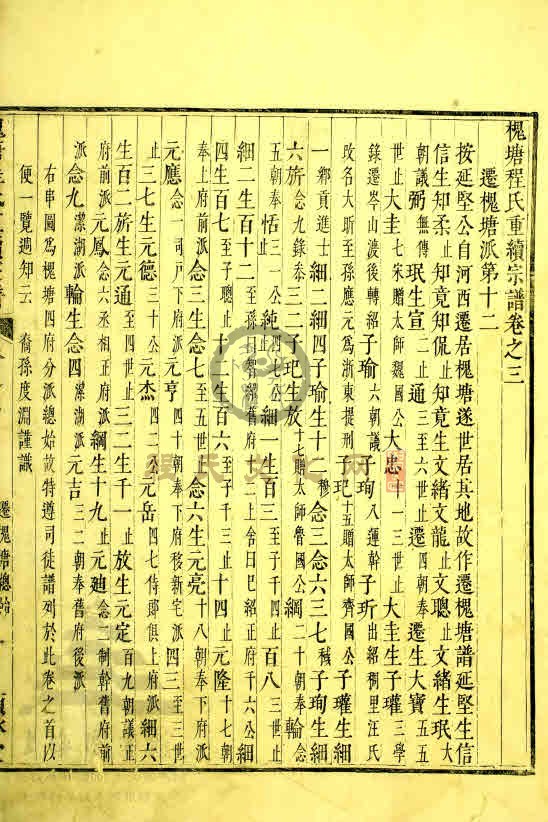 槐塘程氏重續宗譜卷之三
遷槐塘派第十二
按延堅公自河西遷居槐塘遂世居其地故作遷槐塘譜延堅生信
信生知柔止知竟知侃止知竟生文緒文龍止文聰止文緒生珉大
朝議弼無傳珉生宣二止通三至六世止遷四朝奉遷生大寶五五
世止大圭七宋贈太師魏國公大忠十一三世止大圭生子瓘三學
錄遷岑山渡後轉紹子瑜六朝議子珣八運幹子玠出紹稠里汪氏
改名大昕至孫應元為浙東提刑子玘十五贈太師齊國公子瓘生細
一鄉貢進士細二細四子瑜生十二穆念三念六三七穢子珣生細
六旂念九錄奉三二子玘生放十七贈太師魯國公綱二十朝奉輪念
五朝奉恬止三一公純止四七公細一生百三至子千四止百八三世止
細二生百十二至孫 紹舊府十二上舍日巳紹正府千六公細
四生百七至子聰止十二生百六至子千三止十四止元隆十七朝
奉上府前派念三生念七至五世止念六生元亮十八朝奉下府派
元應念一司戶下府派元亨四十朝奉下府移新宅派四三至三世
止三七生元德三十公元杰四二公元岳四七侍郎俱上府派細六
生百二旂生元通至四世止三二生千一止放生元定百九朝議正
府前派元鳳念六丞相正府派綱生十九止元廸念二制幹舊府前
派念九潔湖派輪生念四潔湖派元吉三二朝奉舊府後派
右串圖為槐塘四府分派總始故特遵司徒譜列於此卷之首以
便一覽週知云 裔孫度淵謹識
遷槐塘總始